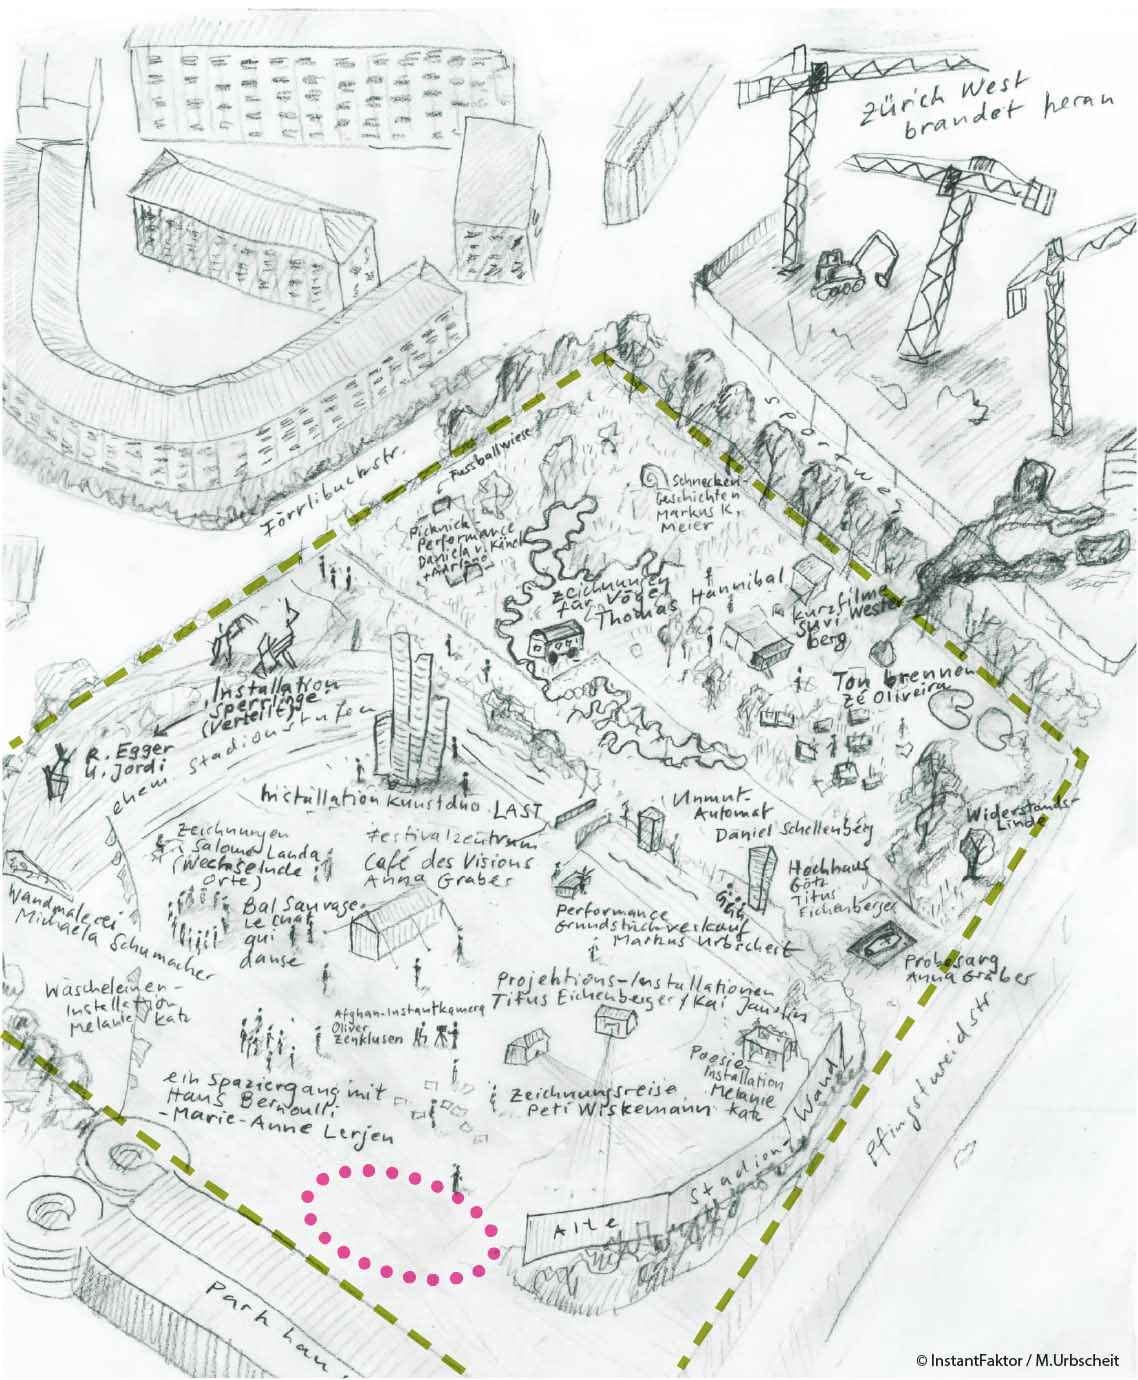 Zürich West
brandet heran
Sportweg
Förrlibuckstr.
Fussballwiese
Picknick-
Performance
Daniela v. Känel
+ Adriano
Schnecken-
Geschichten
Markus K.
Meier
Zeichnungen
für Vögel
Thomas Hannibal
Kurzfilme
Suvi Wester
berg
Ton brennen
Zé Oliveira
Installation
Sperrlinge
(verteilt)
R. Egger
U. Jordi
ehem. Stadionstufen
Installation Kunstduo LAST
Unmut-
Automat
Daniel Schellenberg
Widerstands-
Linde
Zeichnungen
Salome Landa
(Wechselnde
Orte)
Festivalzentrum
Café des Visions
Anna Graber
Hochhaus
Götz
Titus
Eichenberger
Wandmalerei
Michaela Schumacher
Bal Sauvage
Le chat
qui
danse
Performance
Grundstückverkauf
Markus Urbscheit
Probesarg
Anna Graber
Wäscheleinen-
Installation
Melanie Katz
Projektions-Installationen
Titus Eichenberger / Kai
Afghan-Instantkamera
Oliver
Zenklusen
Poesie
Installation
Melanie
Katz
ein Spaziergang mit
Hans Bernoulli
-Marie-Anne Lerjen
Zeichnungsreise
Peti Wiskemann
Pfingstweidstr.
Alte Stadion-Wand
Parkhau
© InstantFaktor / M.Urbscheit